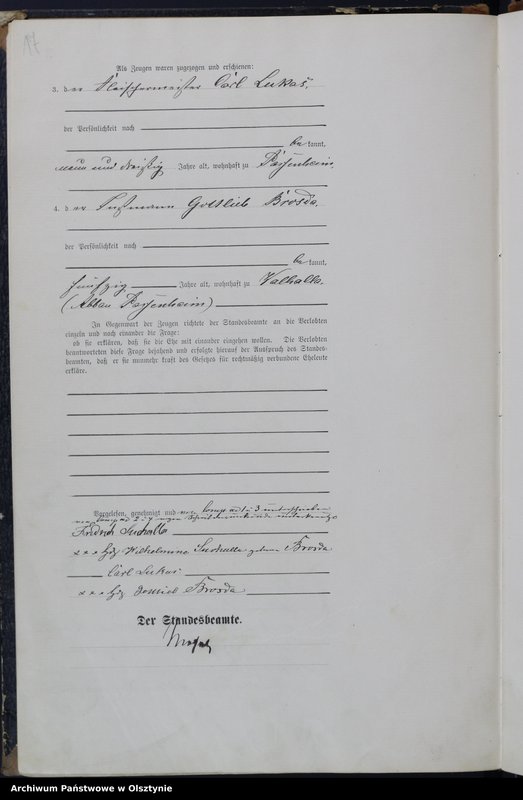 17
Als Zeugen waren zugezogen und erschienen:
3. der Fleischermeister Carl Lukas,
der Persönlichkeit nach
be kannt,
neun und dreißig Jahre alt, wohnhaft zu Passenheim,
4. der Gottlieb Brosda,
der Persönlichkeit nach
be kannt,
fünfzig Jahre alt, wohnhaft zu Walhalla.
(Abbau Passenheim)
In Gegenwart der Zeugen richtete der Standesbeamte an die Verlobten
einzeln und nach einander die Frage:
ob sie erklären, daß sie die Ehe mit einander eingehen wollen. Die Verlobten
beantworteten diese Frage bejahend und erfolgte hierauf der Ausspruch des Standes-
beamten, daß er sie nunmehr kraft des Gesetzes für rechtmäßig verbundene Eheleute
erkläre.
Vorgelesen, genehmigt und von Comp. ad 1 u. 3 unterschrieben
von Comp. ad 2 u. 4 wegen unterkreuzt
Friedrich
+++ Hdz Wilhelmine geborne Brosda
Carl Lukas
+++ Hdz Gottlieb Brosda
Der Standesbeamte.
Archiwum Państwowe w Olsztynie